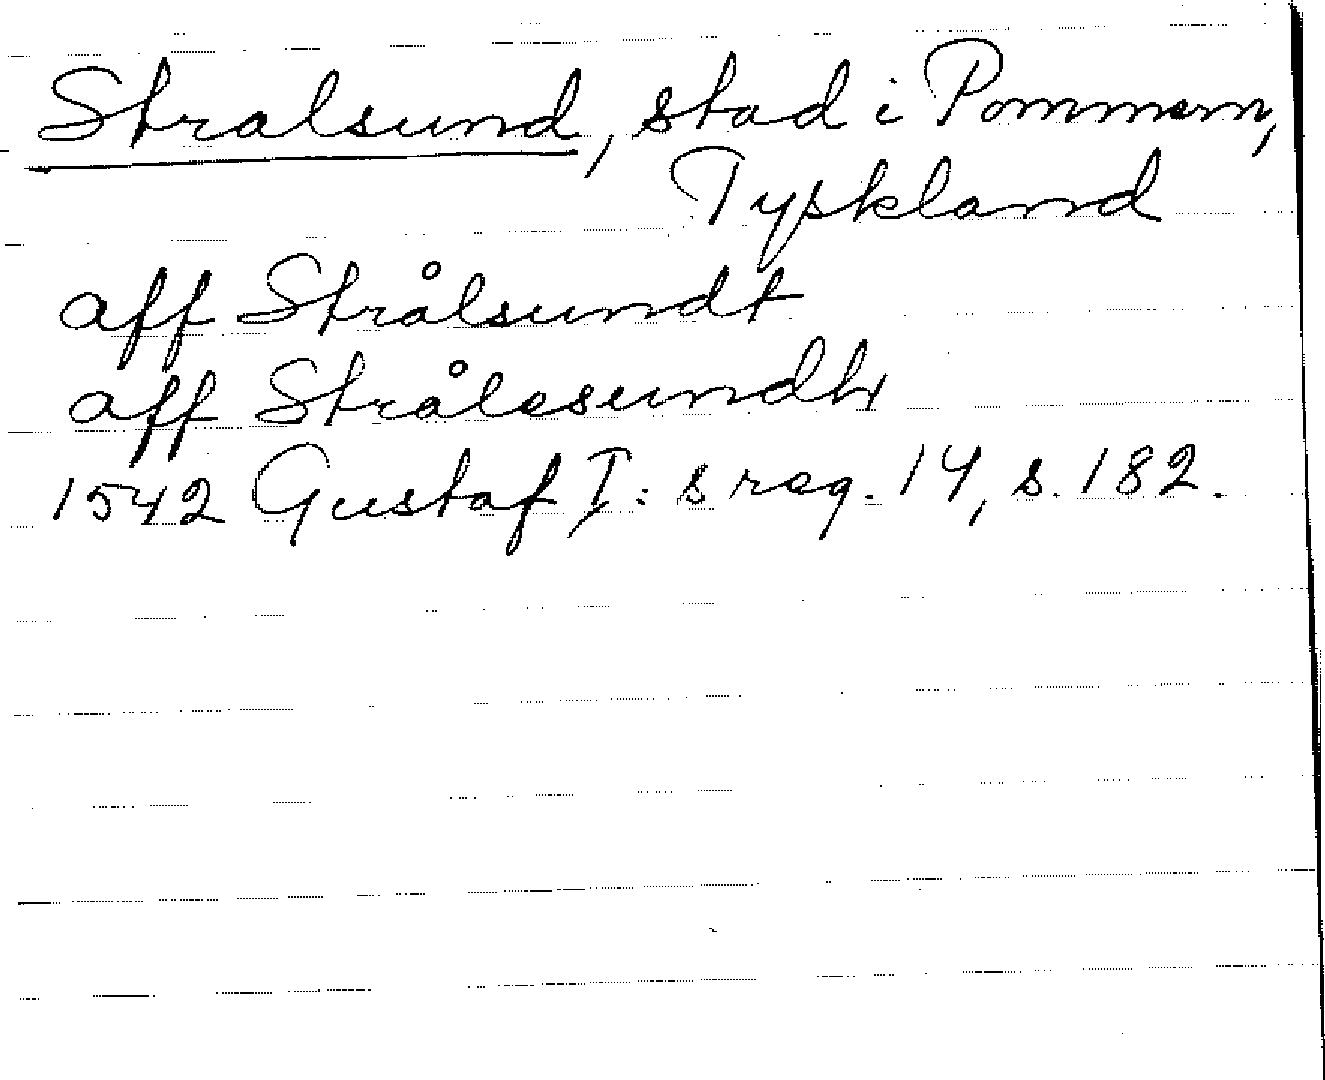 Stralsund, stad i Pommern,
Tyskland
aff Strålsundt
aff Strålesundh
1542 Gustaf I:s reg. 14, s. 182.